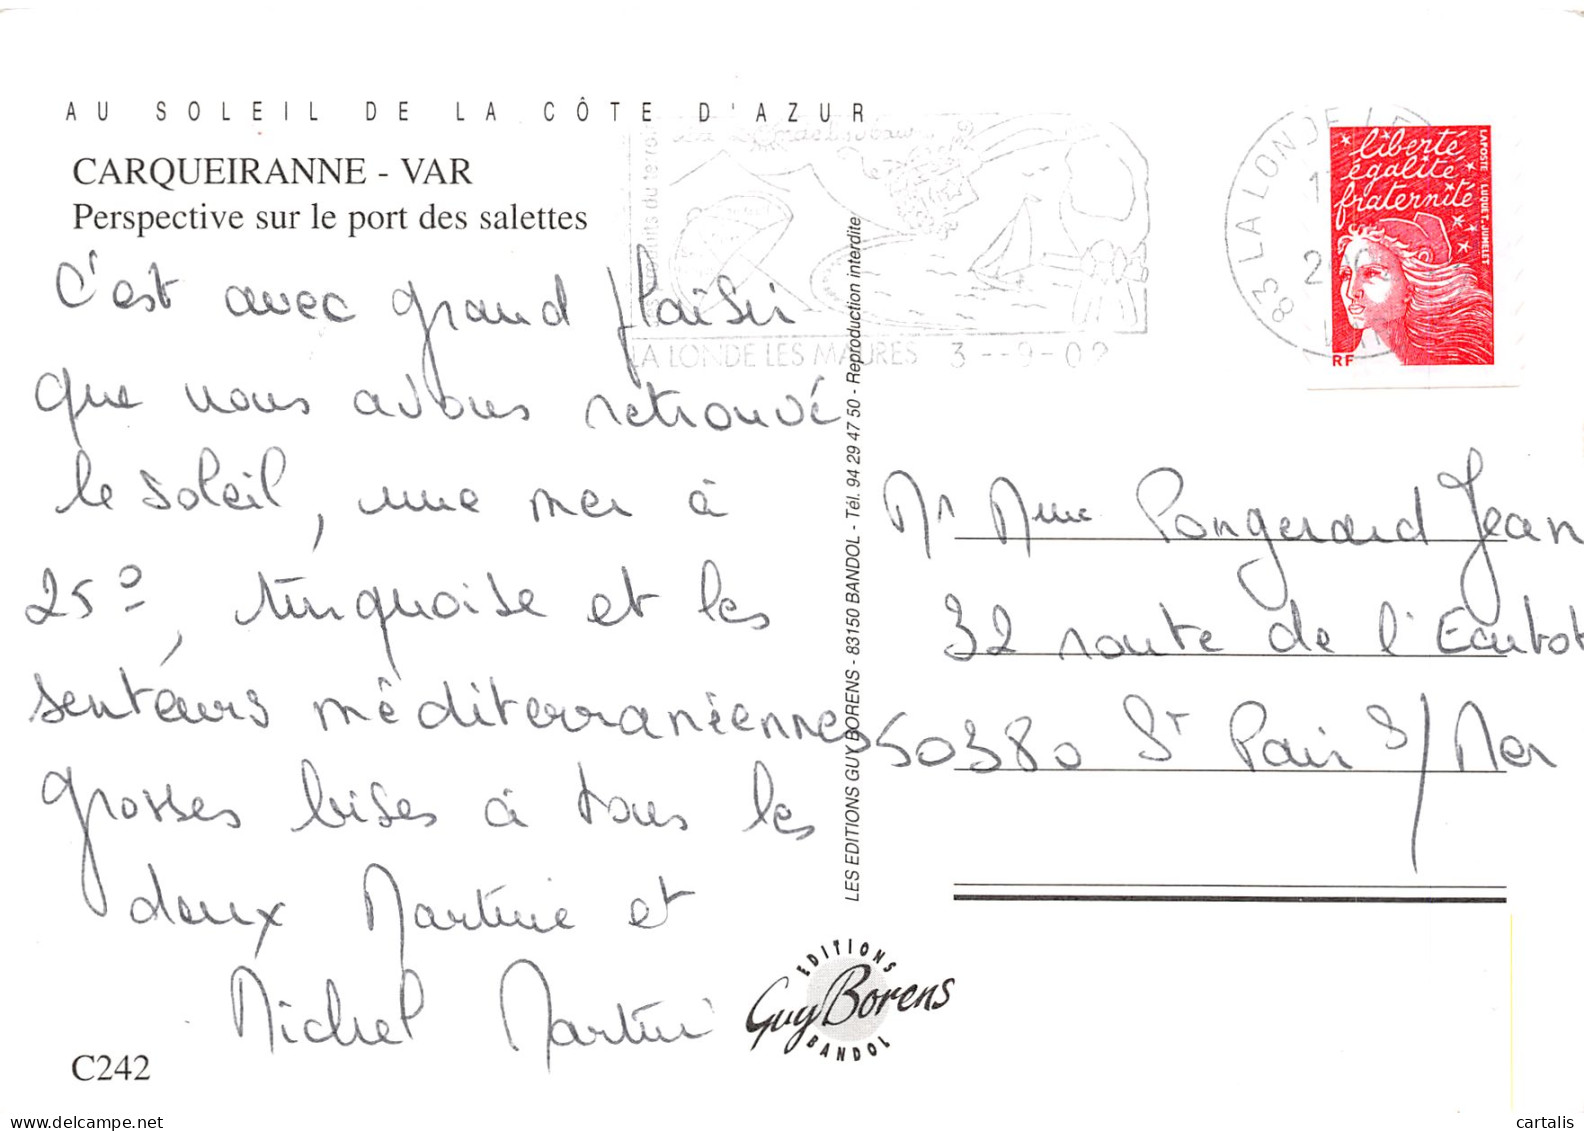 AU SOLEIL DE LA CÔTE D'AZUR
CARQUEIRANNE - VAR
Perspective sur le port des salettes
C'est avec grand plaisir
que nous avons retrouvé
le soleil, une mer à
25°, turquoise et les
senteurs méditerranéennes
grosses bises à tous les
deux Martine et
Michel Martin
C242
LA LONDE LES MAURES 3 - -9 - 02
83 LA LONDE LE
liberté
égalité
fraternité
RF
LAPOSTE LUQUET. JUMELET
LES EDITIONS GUY BORENS - 83150 BANDOL - Tél. 94 29 47 50 - Reproduction interdite
Mr Mme Pongerard Jean
32 route de l'Ecutot
50380 St Pair s/Mer
EDITIONS
Guy Borens
BANDOL
delcampe.net
cartalis